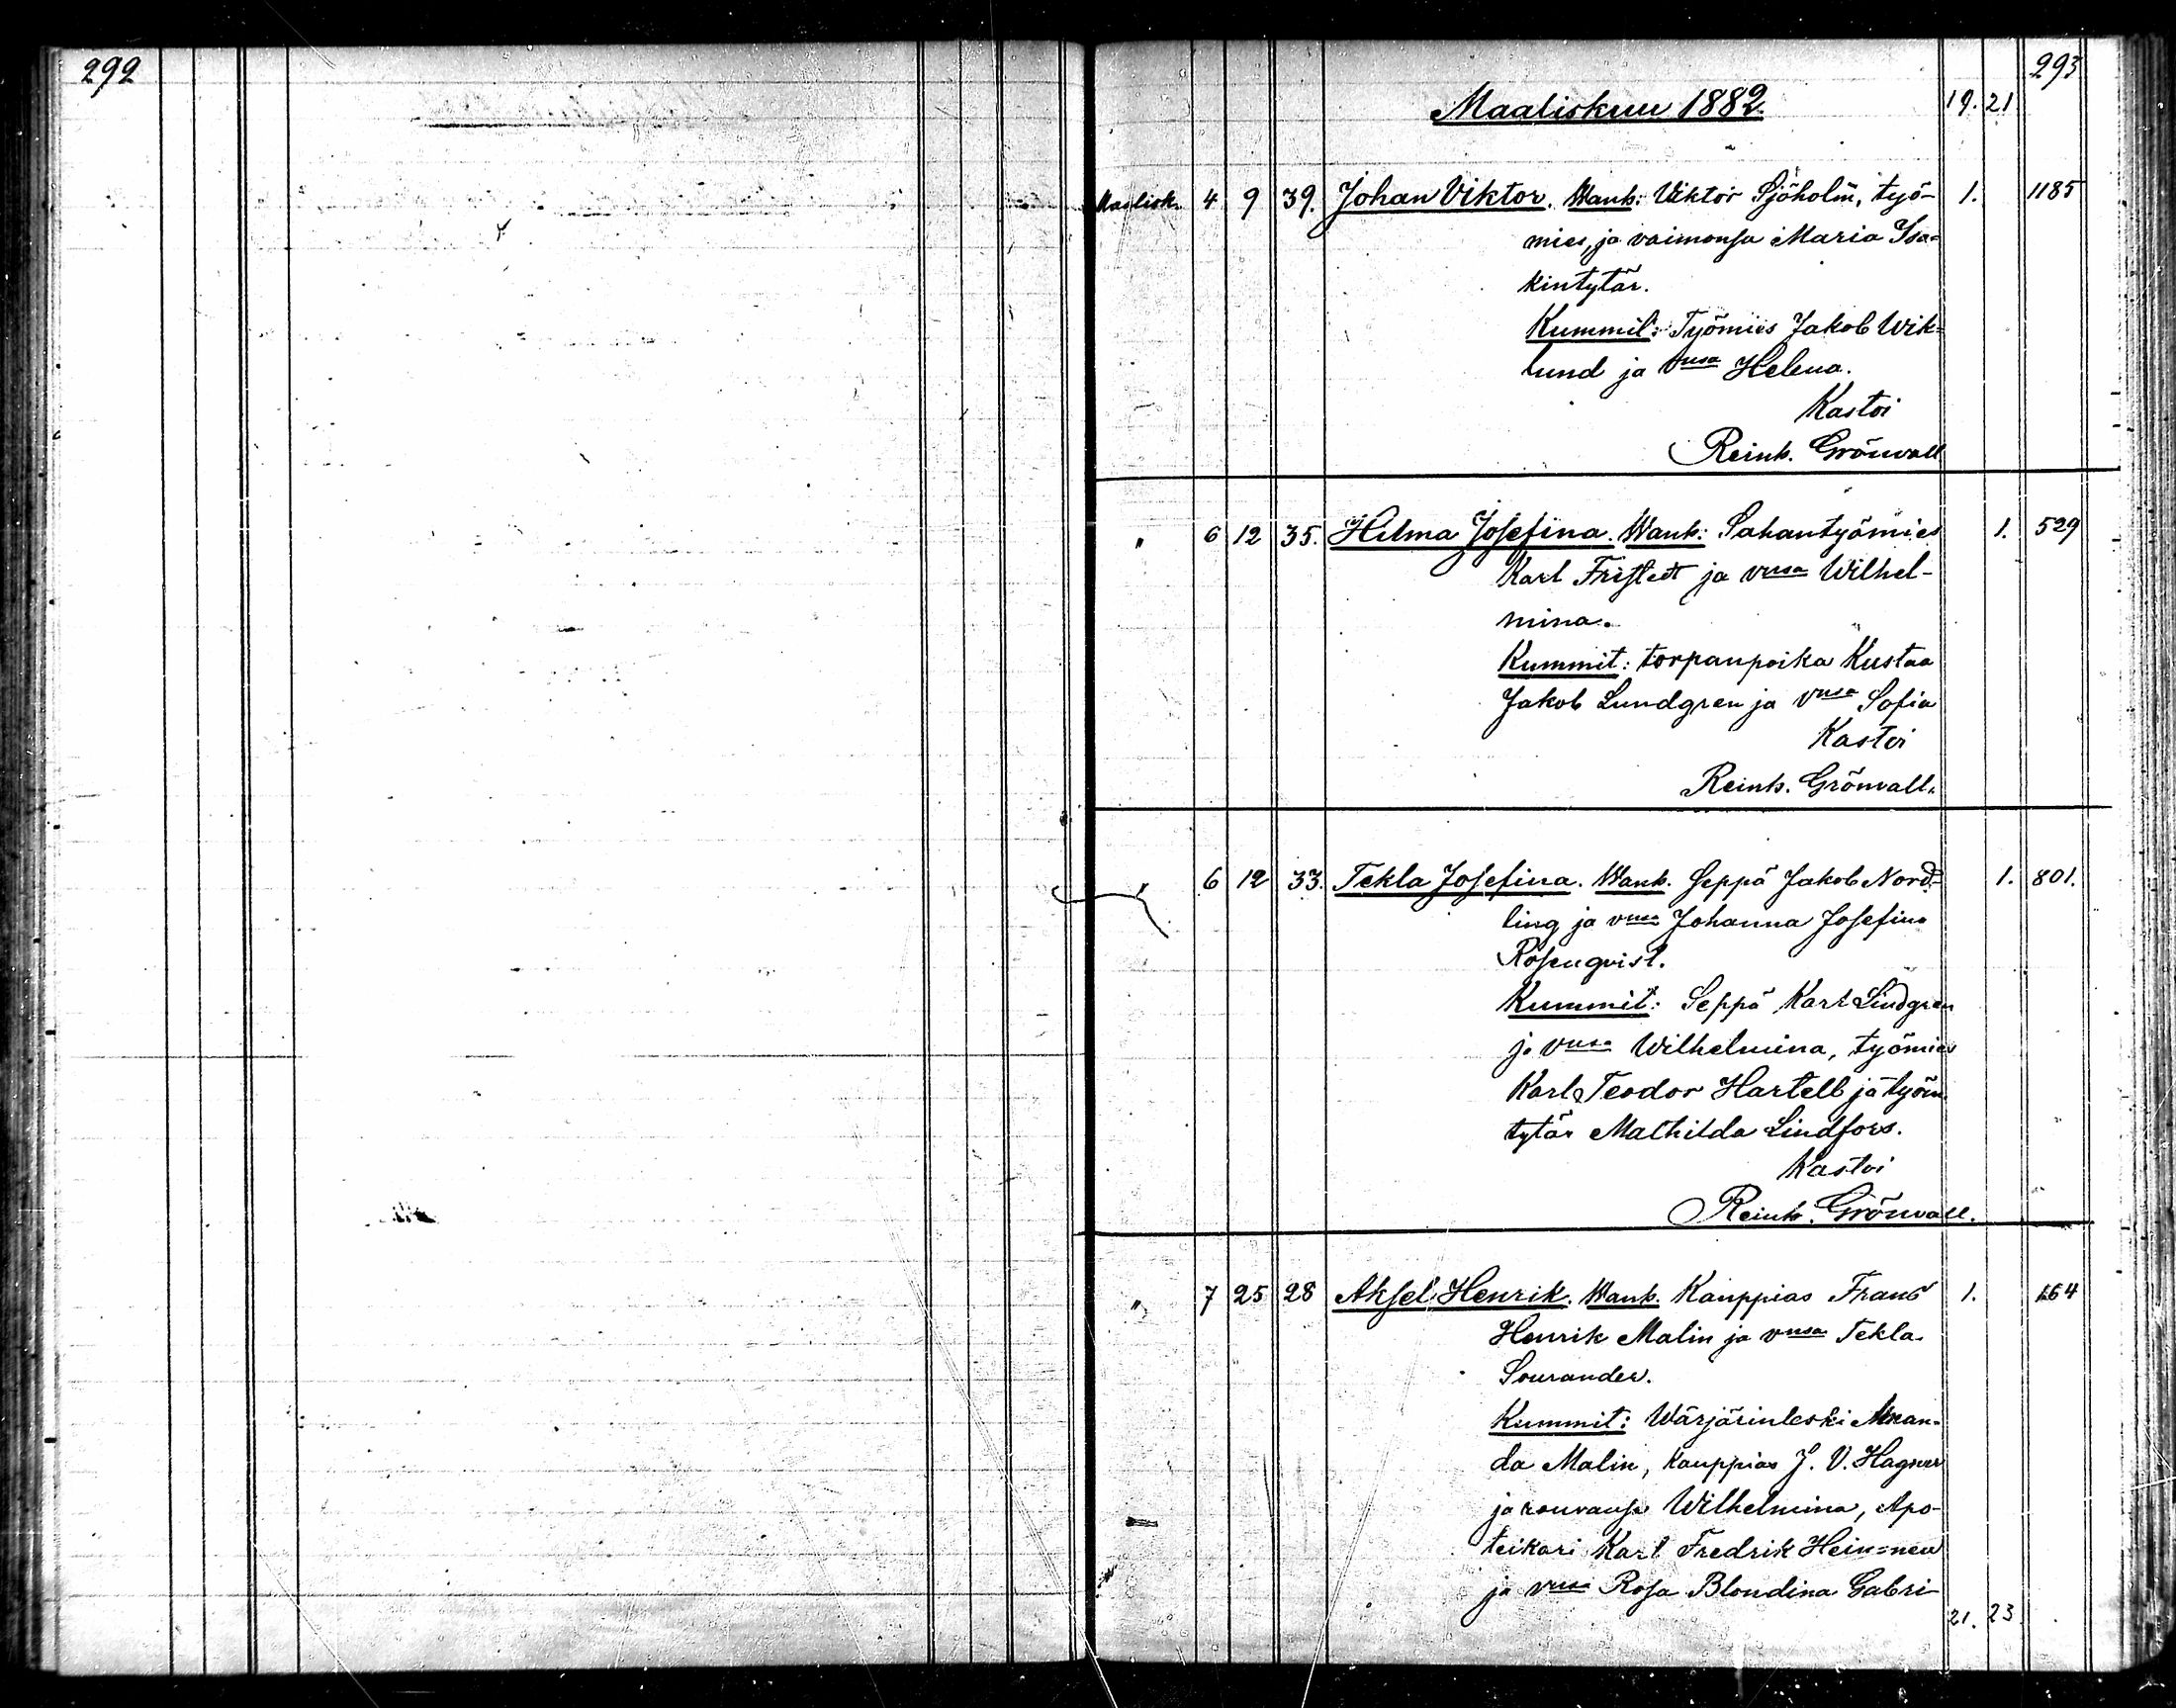 292
293
Maaliskuu 1882. 19. 21.
Maalisk. 4 9 39. Johan Viktor. Wanh: Viktor Sjöholm, työ- 1. 1185
mies, ja vaimonsa Maria Isa=
kintytär.
Kummit: Työmies Jakob Wik=
lund ja vnsa Helena.
Kastoi
Reinh. Grönvall
" 6 12 35. Hilma Josefina. Wanh: Sahantyömies 1. 529
Karl Fristedt ja vnsa Wilhel-
mina.
Kummit: torpanpoika Kustaa
Jakob Lundgren ja vnsa Sofia
Kastoi
Reinh. Grönvall.
" 6 12 33. Tekla Josefina. Wanh. Seppä Jakob Nord= 1. 801.
ling ja vnsa Johanna Josefina
Rosenqvist.
Kummit: Seppä Karl Lindgren
ja vnsa Wilhelmina, työmies
Karl Teodor Hartell ja työm.
tytär Mathilda Lindfors.
Kastoi
Reinh. Grönvall.
" 7 25 28 Aksel Henrik. Wanh. Kauppias Frans 1. 164
Henrik Malin ja vnsa Tekla
Sourander.
Kummit: Wärjärinleski
da Malin, Kauppias J. V. Hagner
ja rouvansa Wilhelmina, Apo-
teikari Karl Fredrik Hein=nen
ja vnsa Rosa Blondina Gabri-
21. 23.